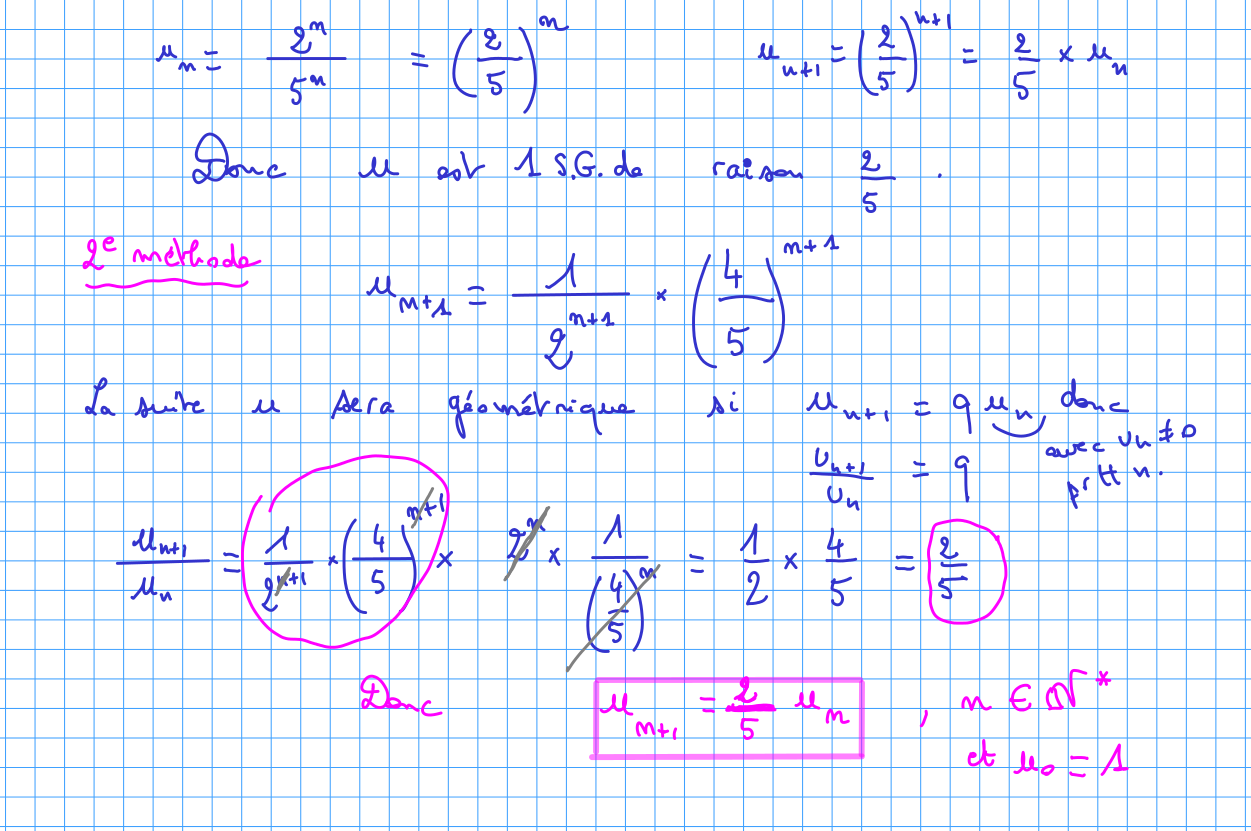 u_n = 2^n / 5^n = (2/5)^n    u_{n+1} = (2/5)^{n+1} = 2/5 × u_n
Donc u est 1 S.G. de raison 2/5 .
2e méthode
u_{n+1} = 1 / 2^{n+1} × (4/5)^{n+1}
La suite u sera géométrique si u_{n+1} = q u_n donc
avec U_n ≠ 0
U_{n+1} / U_n = q    pr tt n.
u_{n+1} / u_n = 1 / 2^{n+1} × (4/5)^{n+1} × 2^n × 1 / (4/5)^n = 1/2 × 4/5 = 2/5
Donc u_{n+1} = 2/5 u_n , n ∈ ℕ*
et u_0 = 1